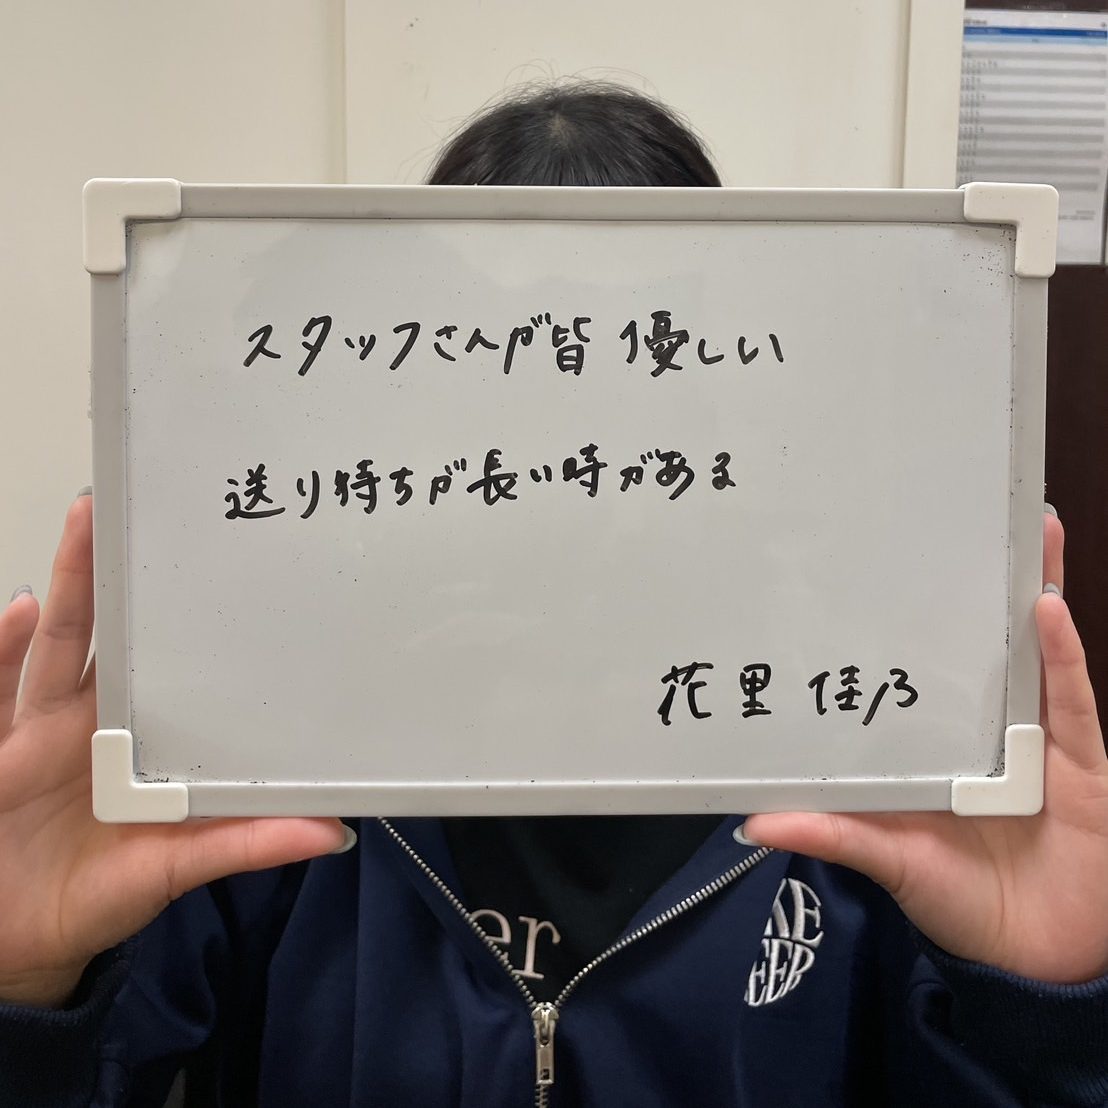 スタッフさんが皆優しい
送り待ちが長い時がある
花里 佳乃
er